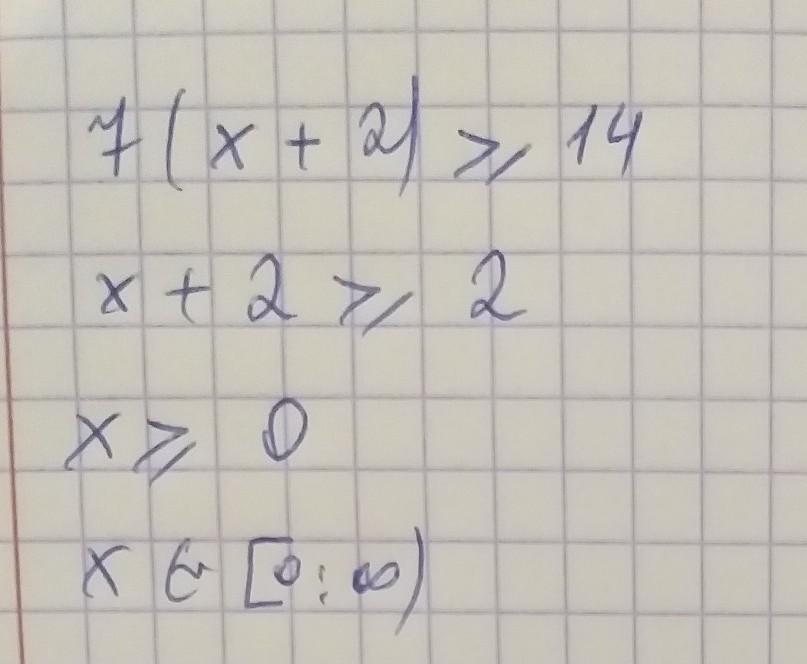 7(x + 2) ⩾ 14
x + 2 ⩾ 2
x ⩾ 0
x ∈ [0; ∞)